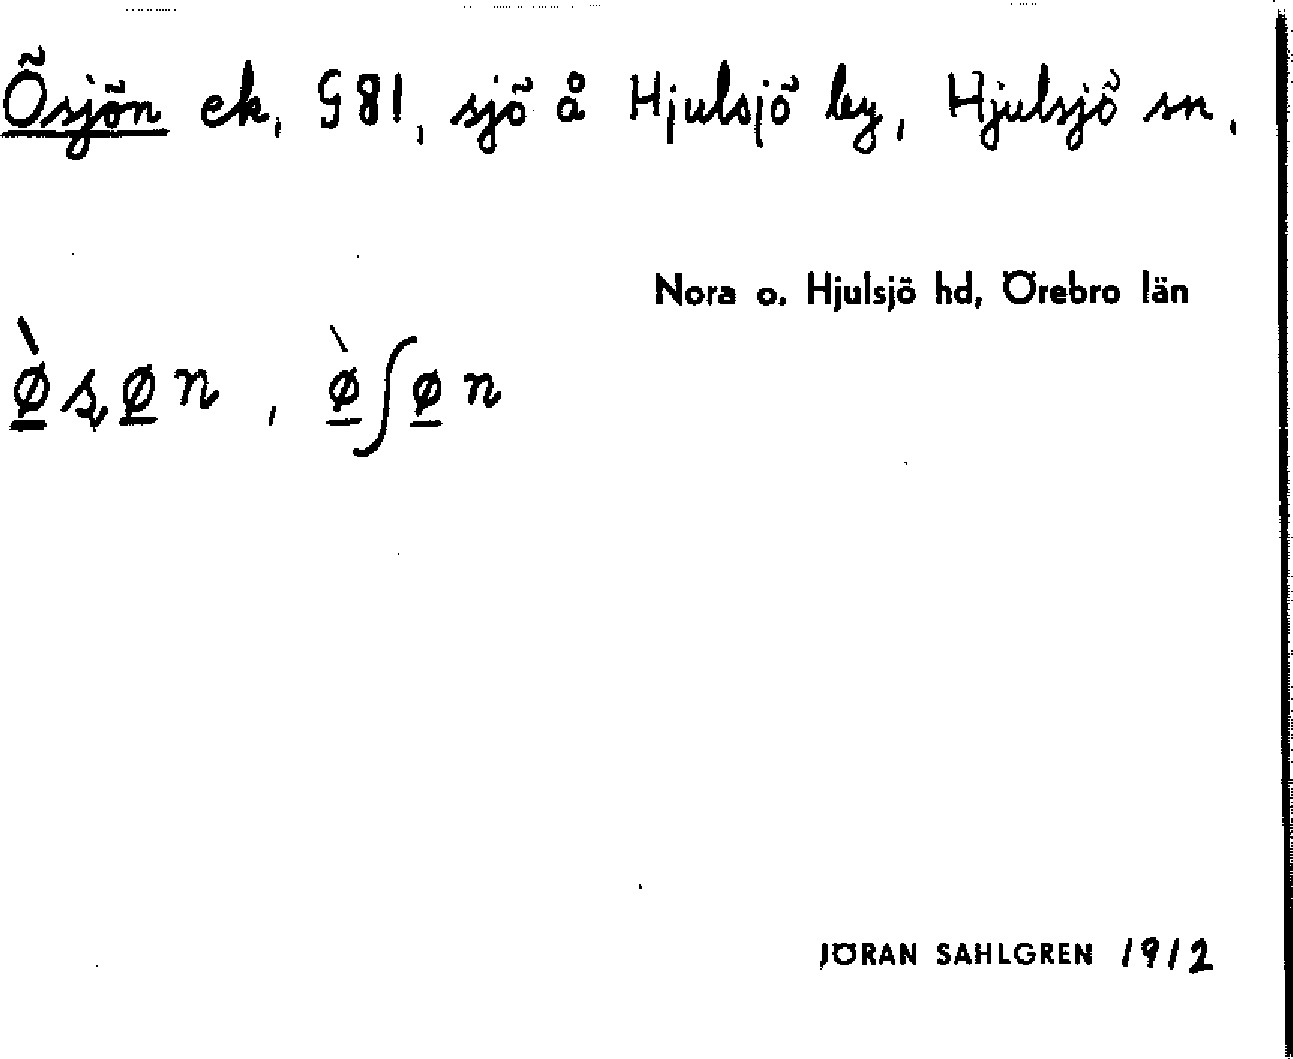 Ösjön ek, G81, sjö å Hjulsjö by, Hjulsjö sn.
Nora o. Hjulsjö hd, Örebro län
ø̠̀ȿø̠n, ø̠̀ʃø̠n
JÖRAN SAHLGREN 1912